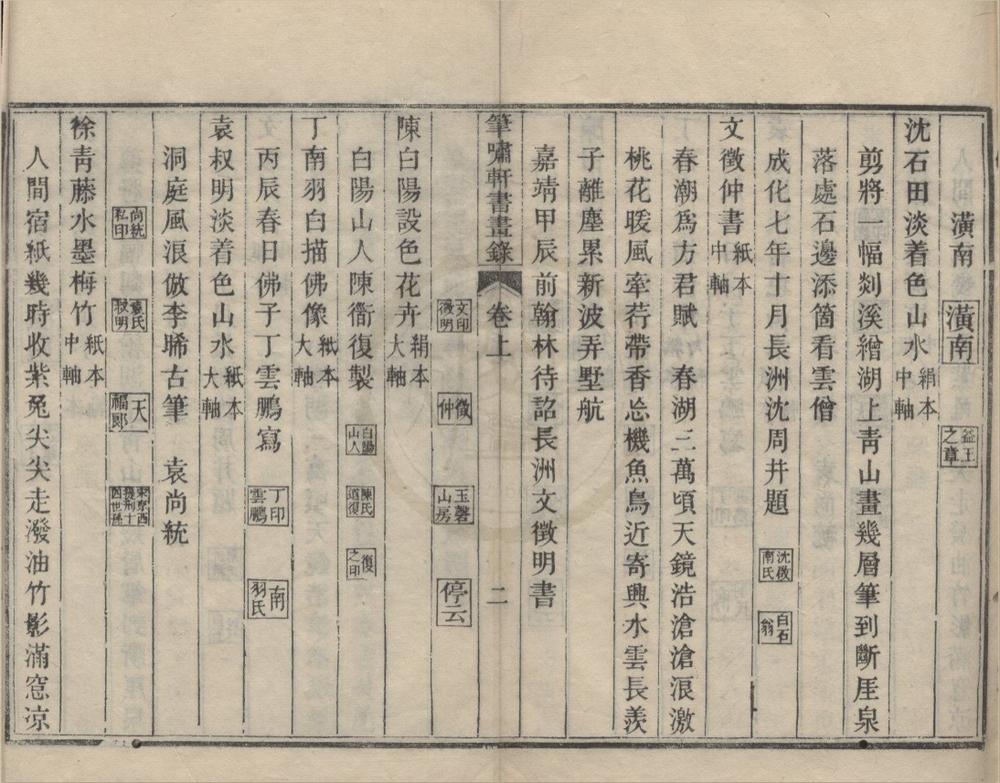 潢南 潢南 益王之章
沈石田淡着色山水 絹本中軸
剪將一幅剡溪繒湖上靑山畫幾層筆到斷厓泉
落處石邊添箇看雲僧
成化七年十月長洲沈周幷題 沈啟南氏 白石翁
文徵仲書 紙本中軸
春潮爲方君賦 春湖三萬頃天鏡浩滄滄浪激
桃花暖風牽荇帶香忘機魚鳥近寄興水雲長羨
子離塵累新波弄墅航
嘉靖甲辰前翰林待詔長洲文徵明書
文印徵明 徵仲 玉磬山房 停云
筆嘯軒書畫錄 卷上 二
陳白陽設色花卉 絹本大軸
白陽山人陳衟復製 白陽山人 陳氏道復 復之印
丁南羽白描佛像 紙本大軸
丙辰春日佛子丁雲鵬寫 丁印雲鵬 南羽氏
袁叔明淡着色山水 紙本大軸
洞庭風浪倣李晞古筆 袁尚統
尚統私印 袁氏叔明
徐靑藤水墨梅竹 紙本中軸
人間宿紙幾時收紫兎尖尖走潑油竹影滿窓凉